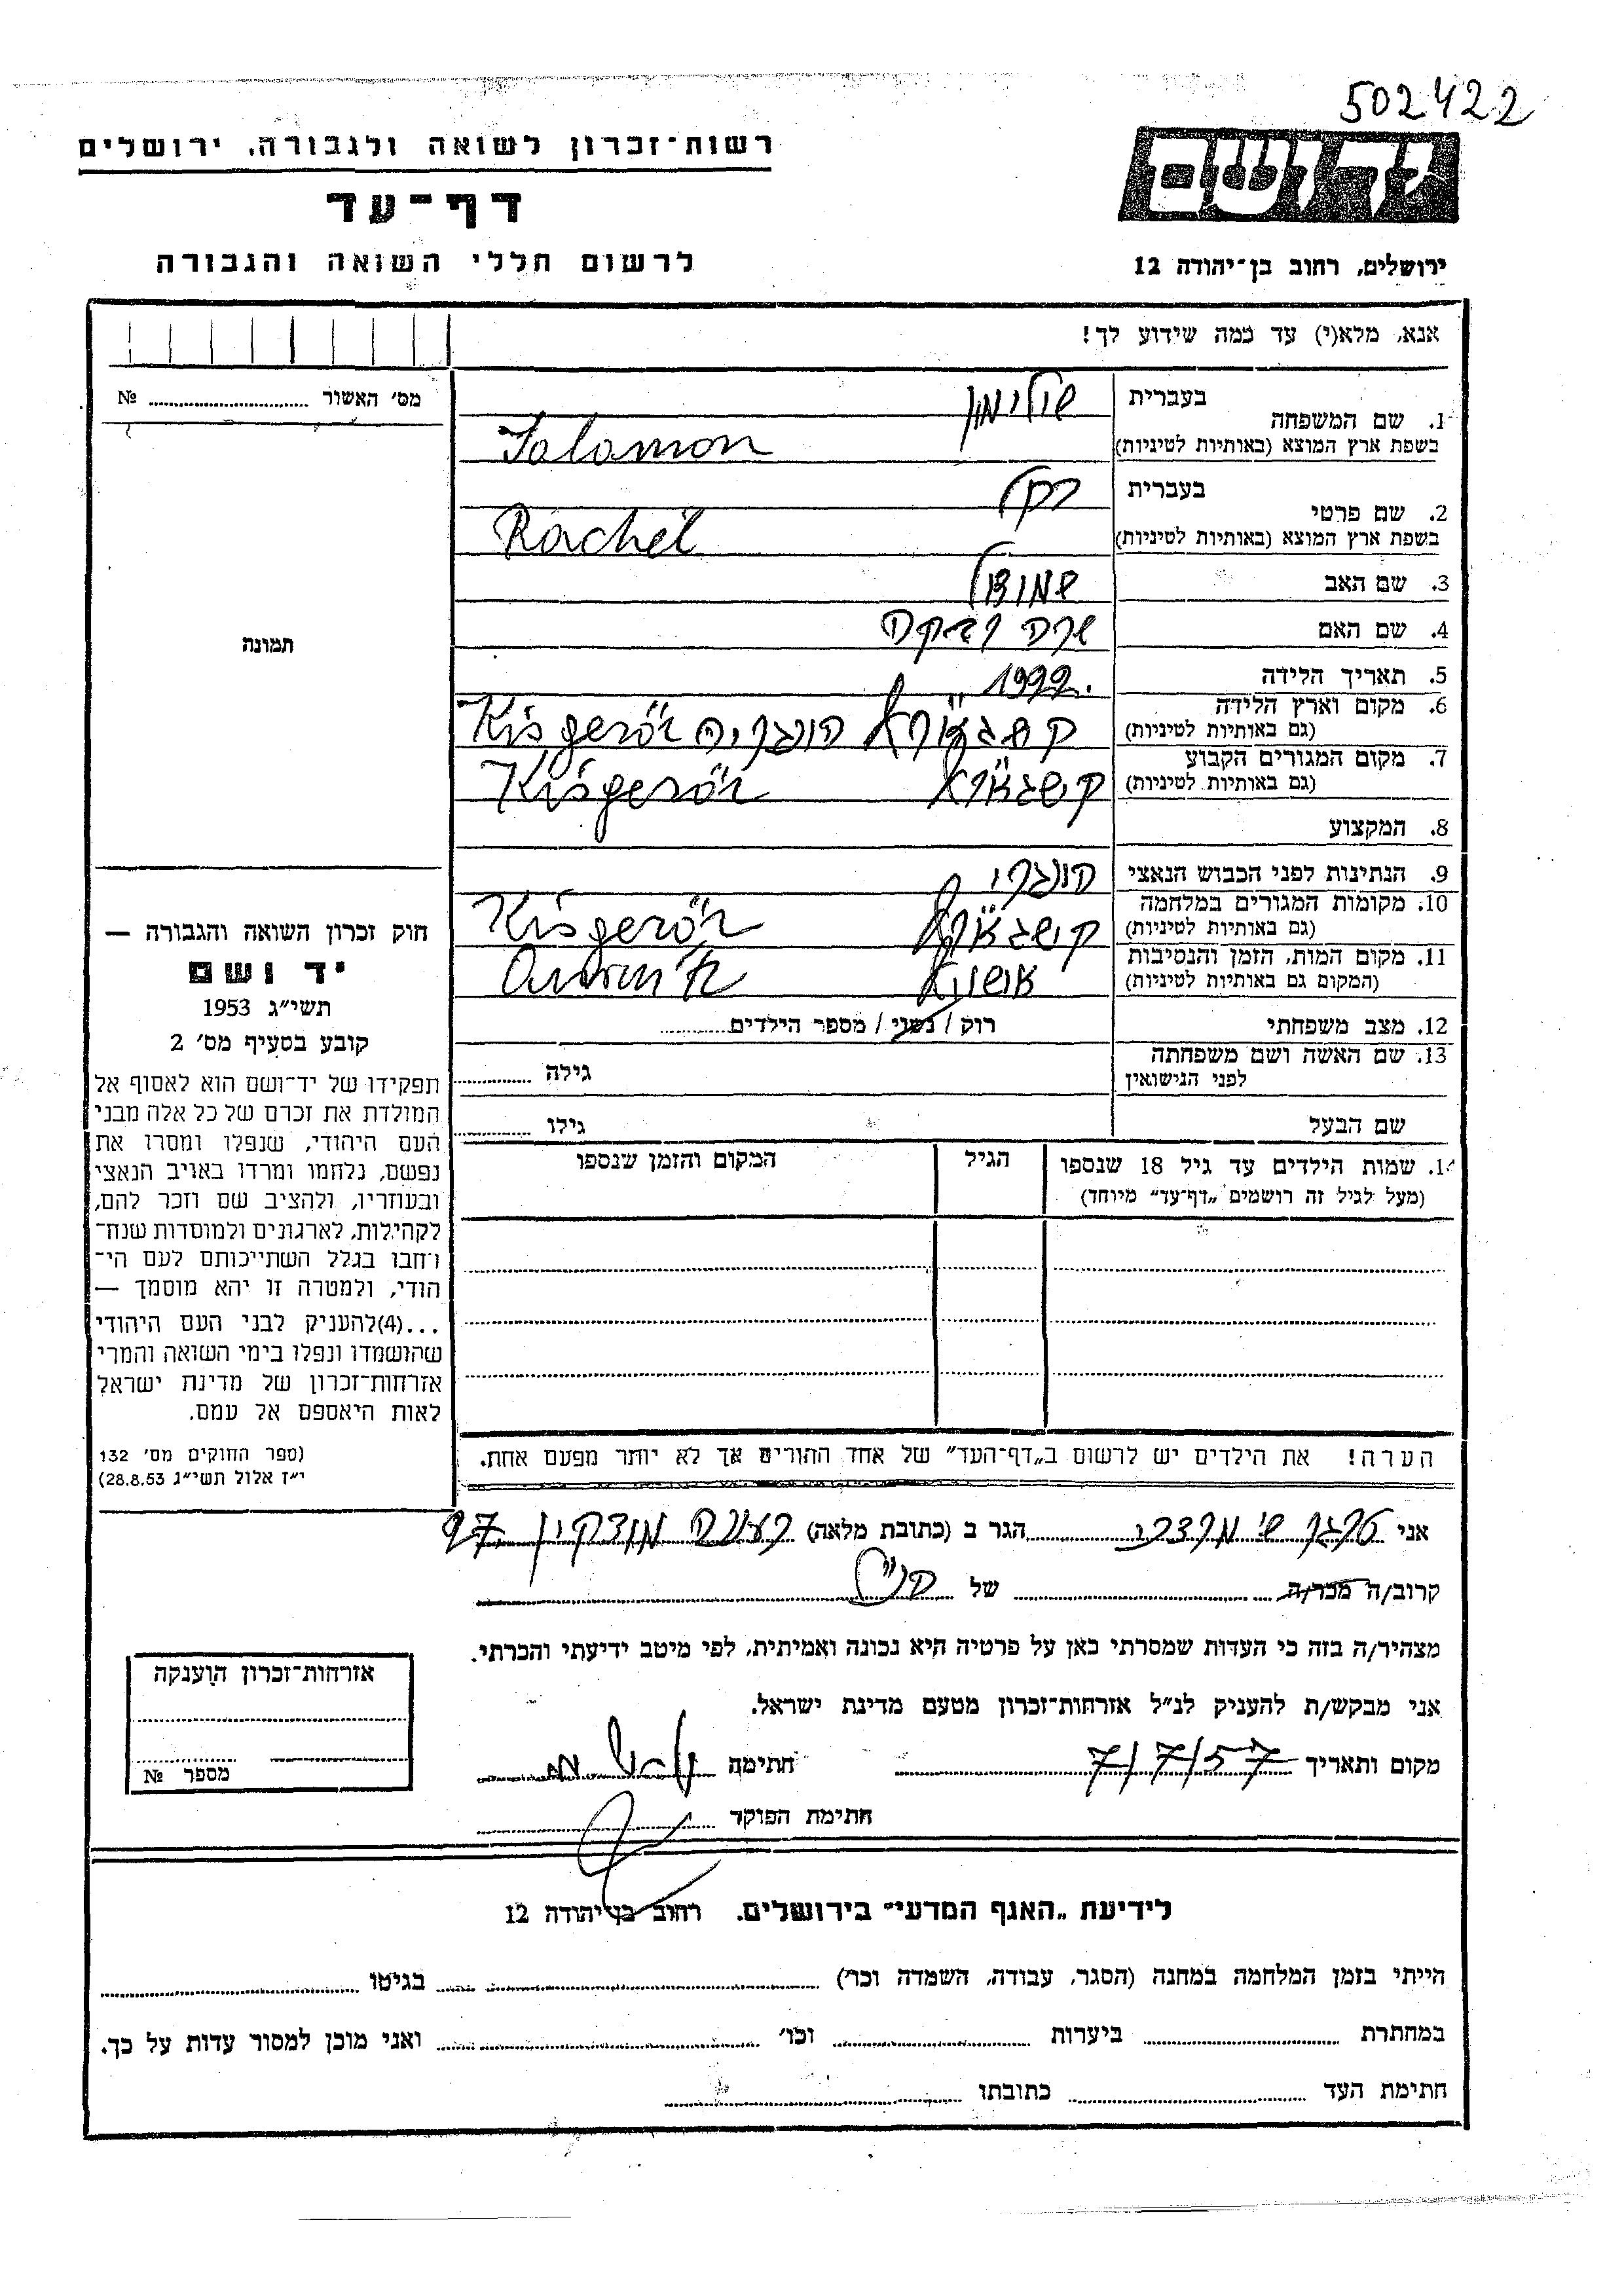 502422
רשות־זכרון לשואה ולגבורה, ירושלים
דף־עד
לרשום חללי השואה והגבורה
ידושם
ירושלים, רחוב בן־יהודה 12
אנא, מלא(י) עד כמה שידוע לך!
מס׳ האשור № 
1. שם המשפחה
בעברית
בשפת ארץ המוצא (באותיות לטיניות)
Salamon
2. שם פרטי
בעברית רחל
בשפת ארץ המוצא (באותיות לטיניות)
Rachel
3. שם האב שמואל
4. שם האם שרה רבקה
5. תאריך הלידה 1922
6. מקום וארץ הלידה
(גם באותיות לטיניות) הונגריה Kisgerör
7. מקום המגורים הקבוע
(גם באותיות לטיניות) Kisgerör
8. המקצוע
9. הנתינות לפני הכבוש הנאצי הונגרי
10. מקומות המגורים במלחמה
(גם באותיות לטיניות) Kisgerör
11. מקום המות, הזמן והנסיבות
(המקום גם באותיות לטיניות)
12. מצב משפחתי רוק / נשוי / מספר הילדים
13. שם האשה ושם משפחתה
לפני הנישואין גילה
שם הבעל גילו
14. שמות הילדים עד גיל 18 שנספו הגיל המקום והזמן שנספו
(מעל לגיל זה רושמים „דף־עד” מיוחד)
הערה! את הילדים יש לרשום ב„דף־העד” של אחד ההורים אך לא יותר מפעם אחת.
תמונה
חוק זכרון השואה והגבורה —
יד ושם
תשי״ג 1953
קובע בסעיף מס׳ 2
תפקידו של יד־ושם הוא לאסוף אל
המולדת את זכרם של כל אלה מבני
העם היהודי, שנפלו ומסרו את
נפשם, נלחמו ומרדו באויב הנאצי
ובעוזריו, ולהציב שם וזכר להם,
לקהילות, לארגונים ולמוסדות שנח־
רחבו בגלל השתייכותם לעם הי־
הודי, ולמטרה זו יהא מוסמך —
...(4)להעניק לבני העם היהודי
שהושמדו ונפלו בימי השואה והמרי
אזרחות־זכרון של מדינת ישראל
לאות היאספם אל עמם.
(ספר החוקים מס׳ 132
י״ז אלול תשי״ג 28.8.53)
אני מרדכי הגר ב (כתובת מלאה) רעננה 97
קרוב/ה מכר/ה של
מצהיר/ה בזה כי העדות שמסרתי כאן על פרטיה היא נכונה ואמיתית, לפי מיטב ידיעתי והכרתי.
אני מבקש/ת להעניק לנ״ל אזרחות־זכרון מטעם מדינת ישראל.
מקום ותאריך 7/7/57 חתימה
חתימת הפוקד
אזרחות־זכרון הוענקה
מספר №
לידיעת „האגף המדעי” בירושלים. רחוב בן יהודה 12
הייתי בזמן המלחמה במחנה (הסגר, עבודה, השמדה וכו׳) בגיטו
במחתרת ביערות וכו׳ ואני מוכן למסור עדות על כך.
חתימת העד כתובתו